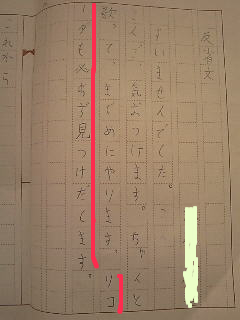 反省文
すいませんでした。
こんど、気おつけます。ちゃんと
歌って、まじめにやります。リコ
ーダも必らず見つけだします。
これから